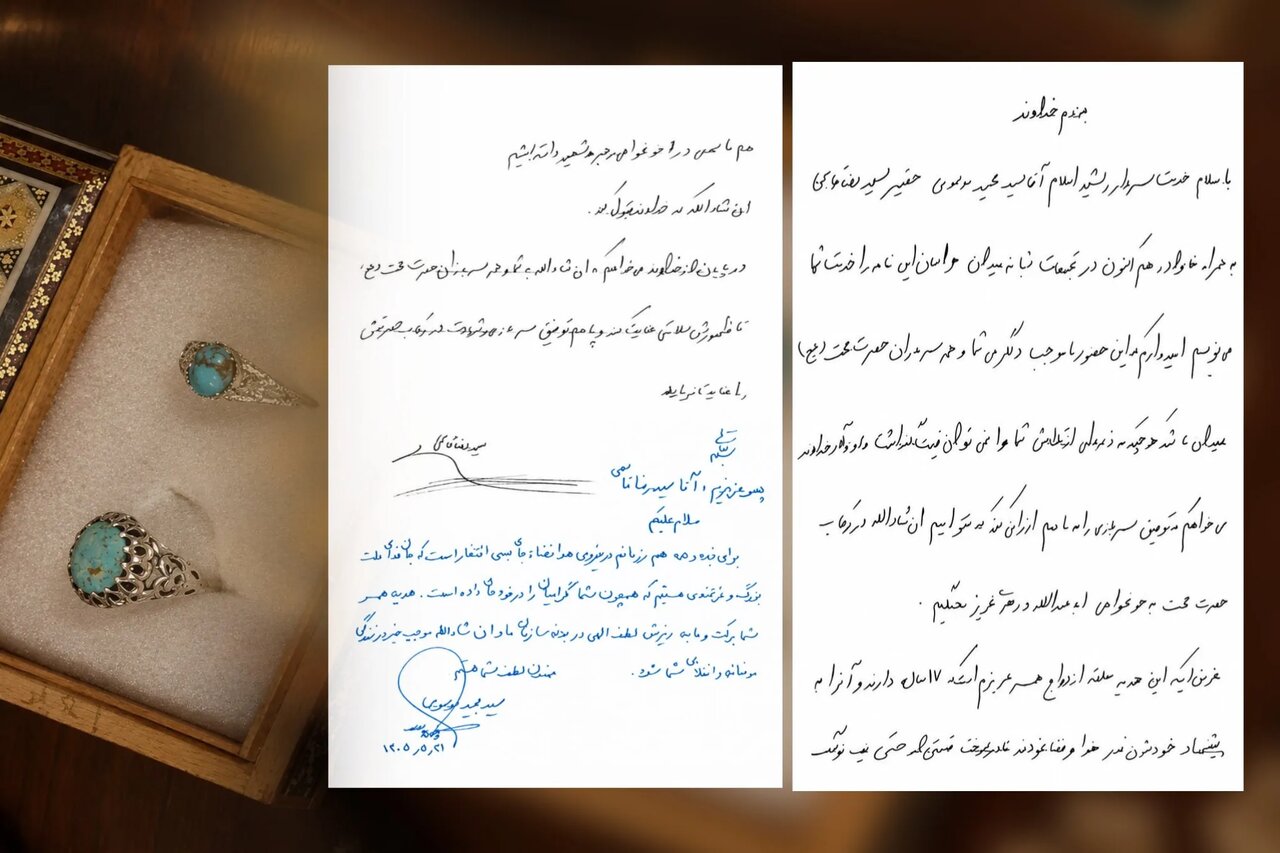 بنام خداوند
با سلام خدمت سردار رشید اسلام آقا سید مجید موسوی حقیر سید رضا قاسمی
به همراه خانواده هم اکنون در تجمعات شبانه میدان خراسان این نامه را خدمت شما
می نویسم امیدوارم که این حضور ما موجب دلگرمی شما و همه سربازان حضرت حجت (عج)
میدان باشد هر چند که ذره ای از شما را نمی توان و از خداوند
می خواهم که توفیق سربازی را به ما هم ارزانی کند که بتوانیم ان شاءالله در رکاب
حضرت حجت به خونخواهی ابا عبدالله و رهبر عزیز بجنگیم .
غرض اینکه این هدیه حلقه ازدواج همسر عزیزم است که ۱۷ سال دارند و آنرا به
پیشنهاد خودشون نذر هوا فضا نمودند تا در ساخت قسمتی هر چند حتی
هم ما سهمی در خونخواهی رهبر شهید داشته باشیم
ان شاءالله که خداوند قبول کند .
در پایان از خداوند می خواهم که ان شاءالله به شما و همه سربازان حضرت حجت (عج)
تا ظهورش سلامتی عنایت کند و به ما هم توفیق سربازی و شهادت در رکاب حضرتش
را عنایت بفرماید
سید رضا قاسمی
پسر عزیزم، آقا سید رضا قاسمی
سلام علیکم
برای بنده و همه هم رزمانم در نیروی هوافضاء جای بسی افتخار است که جان فدای ملت
بزرگ و غرتمندی هستیم که همچون شما گرامیان را در خود جای داده است. هدیه همسر
شما برکت و مایه ریزش لطف الهی در بدنه سازمان ما و ان شاءالله موجب خیر در زندگی
مومنانه و انقلابی شما شود.
ممنون لطف شما هستم
سید مجید موسوی
۱۴۰۵/۵/۲۱